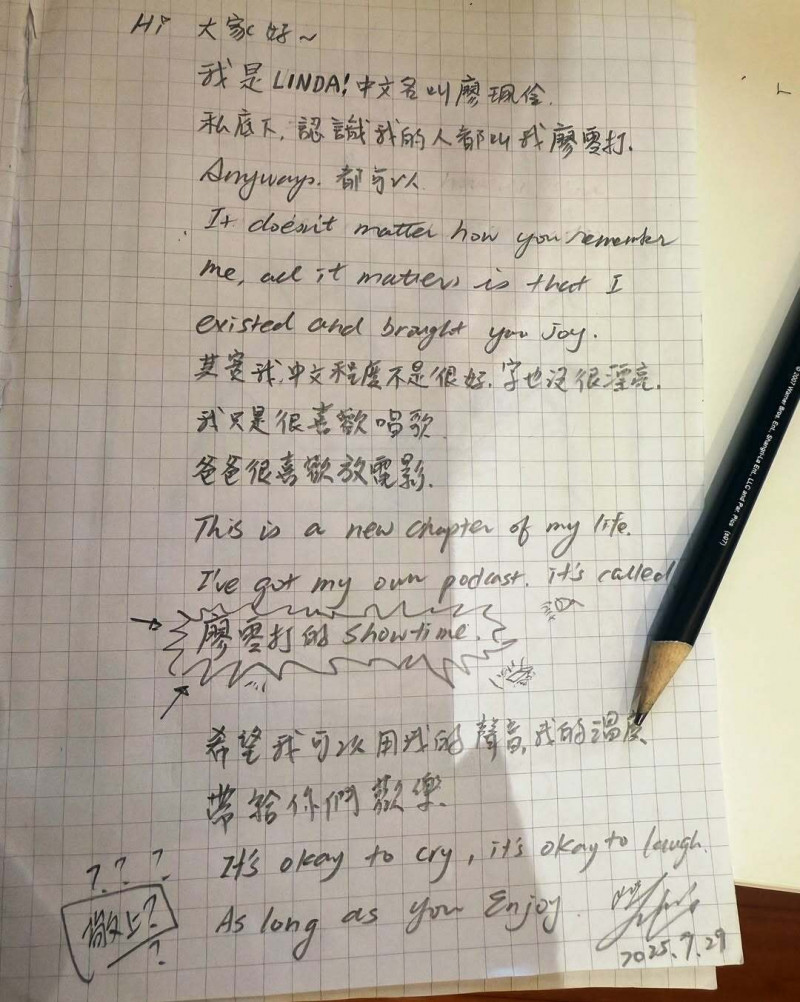 Hi 大家好~
我是LINDA!中文名叫廖珮伶.
私底下,認識我的人都叫我廖雯打.
Anyways. 都可以
It doesn't matter how you remember
me, all it matters is that I
existed and brought you joy.
其實我,中文程度不是很好,字也沒很漂亮.
我只是很喜歡唱歌
爸爸很喜歡放電影.
This is a new chapter of my life.
I've got my own podcast. it's called
廖雯打的 showtime.
希望我可以用我的聲音,我的溫度
帶給你們歡樂.
It's okay to cry, it's okay to laugh.
As long as you Enjoy.
? ? ?
敬上?
?
2025.9.29
© 2007 Warner Bros. Ent., Shangri-La Ent., LLC and Par. Pics. (s07)